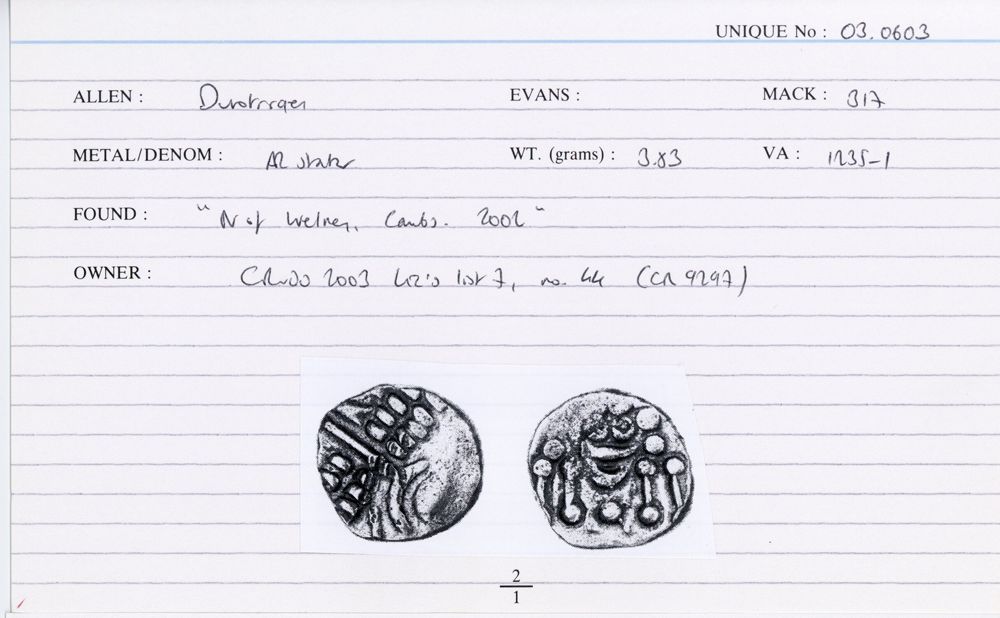 UNIQUE No : 03.0603
ALLEN : Durotriges EVANS : MACK : 317
METAL/DENOM : AR stater WT. (grams) : 3.83 VA : 1235-1
FOUND : "N of Welney, Cambs. 2002"
OWNER : 2003 Liz's list 7, no. 44 (CR 9297)
2
1